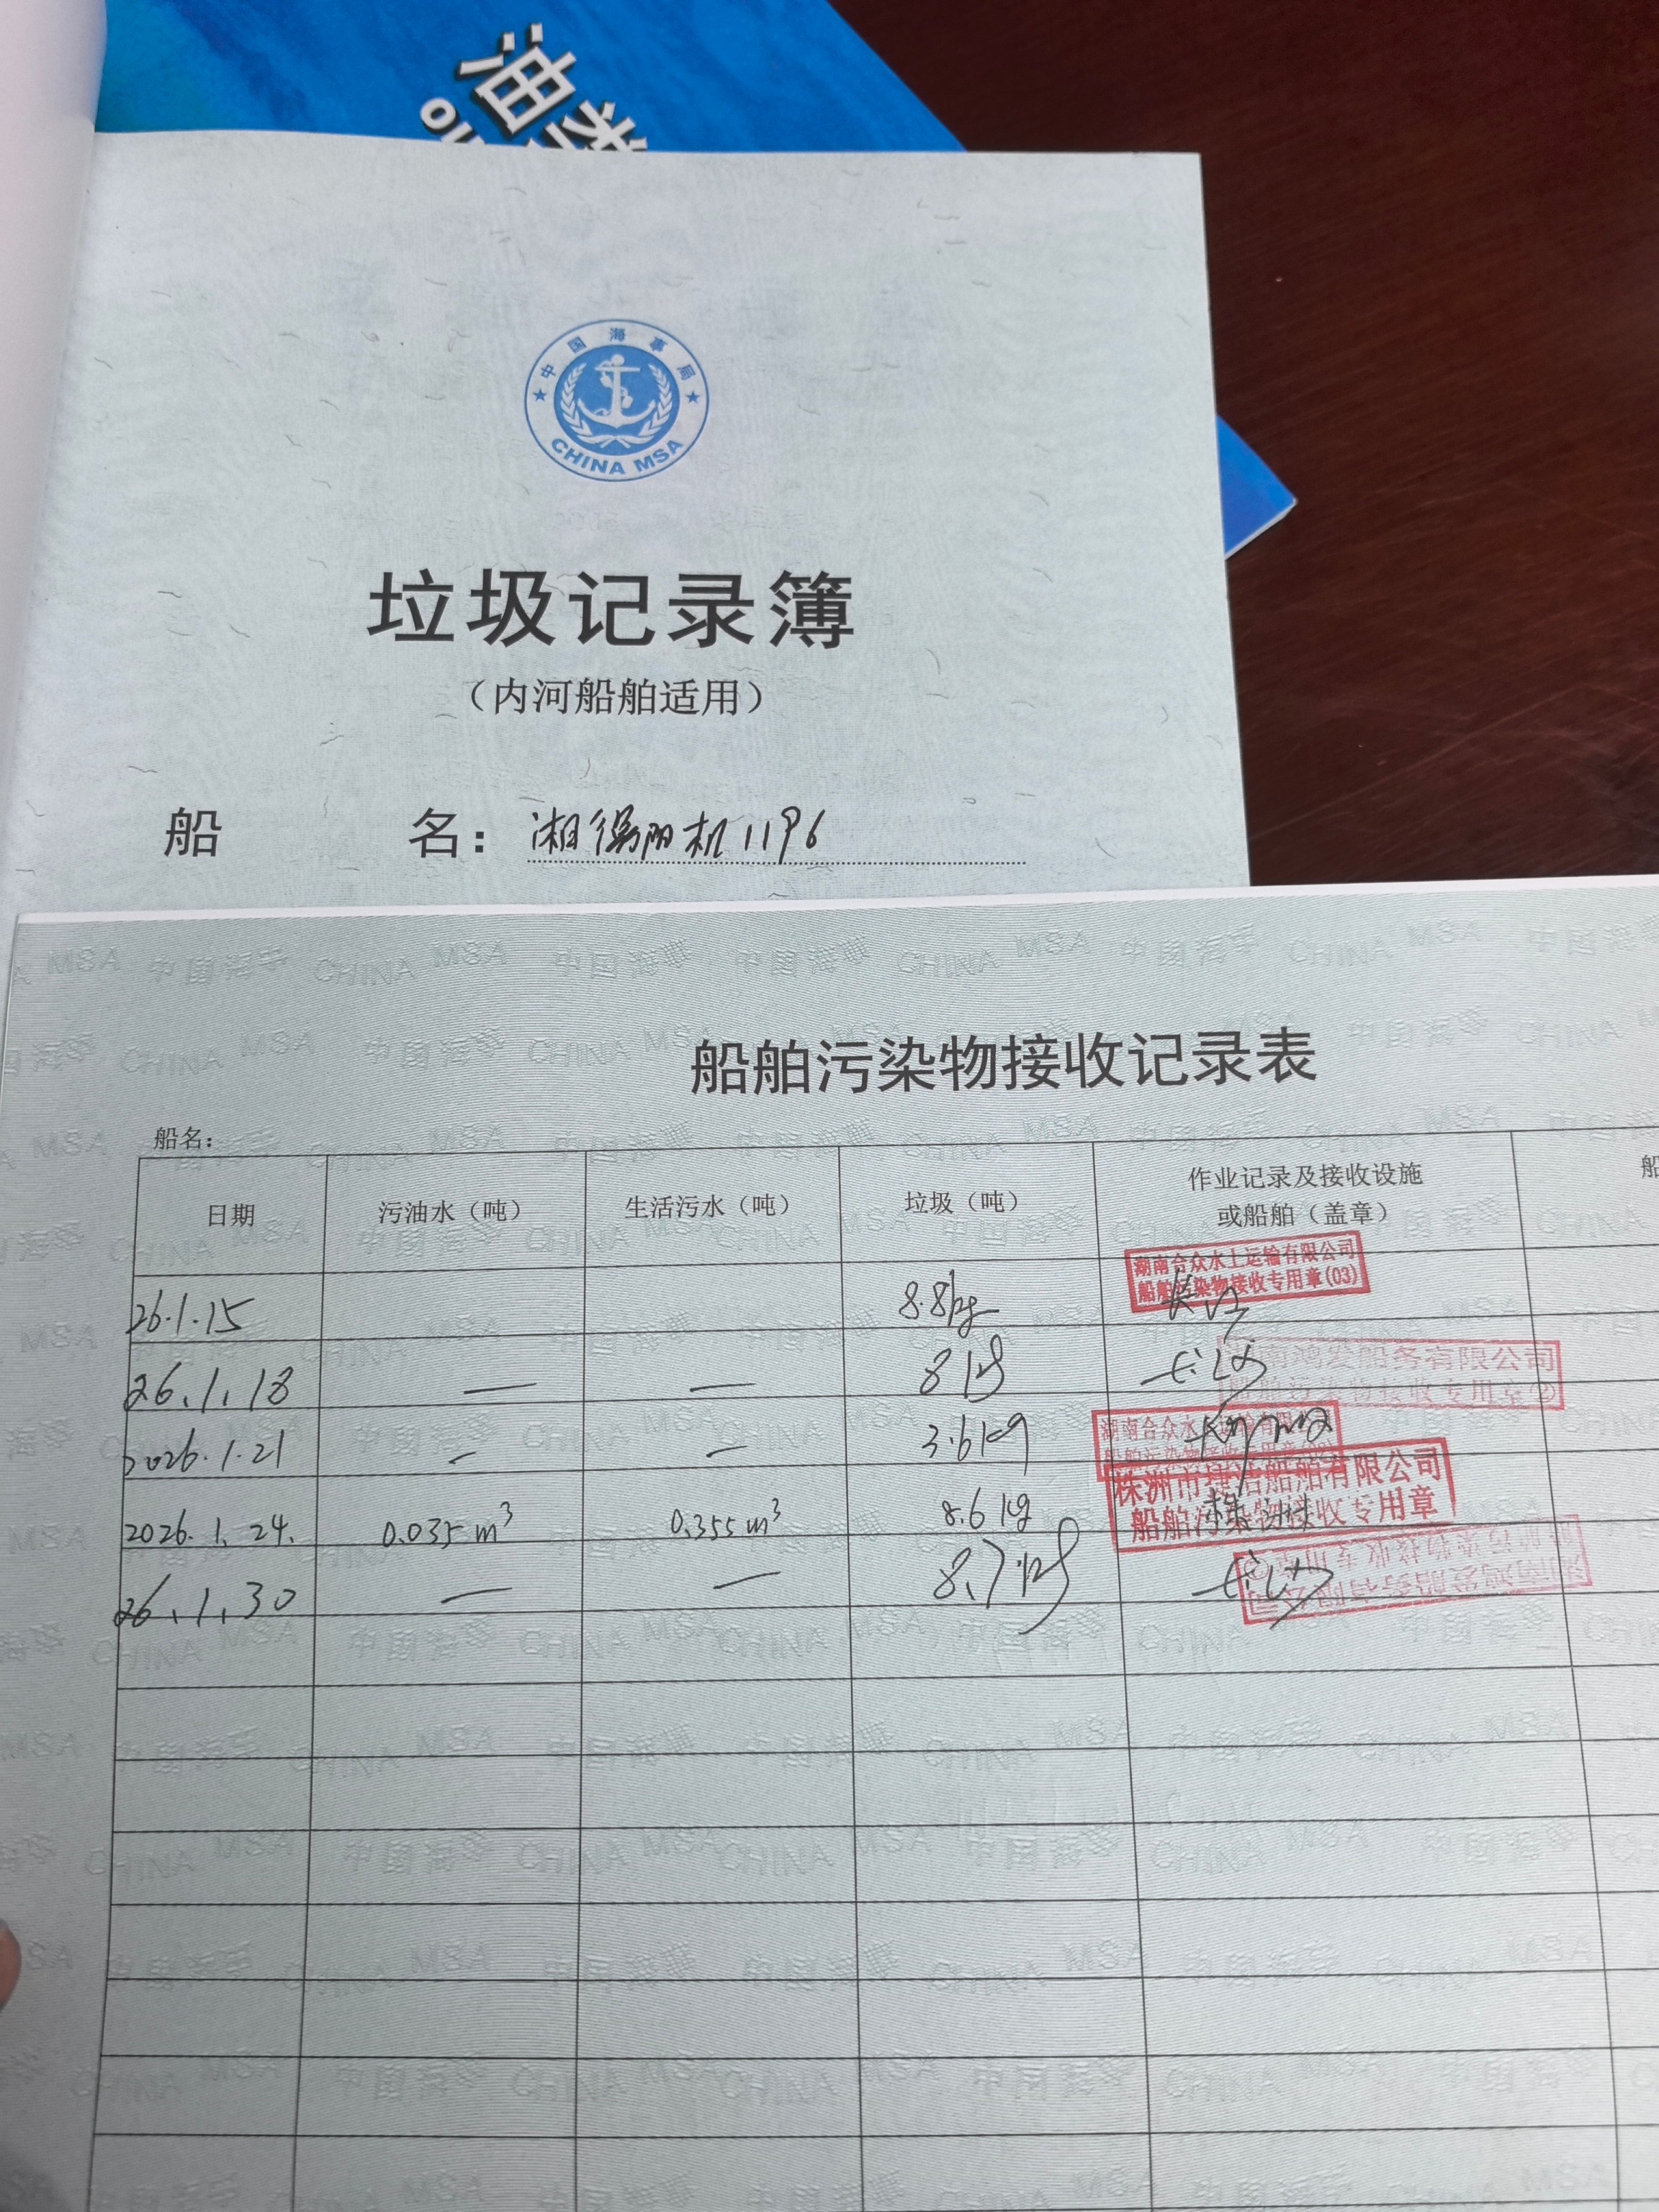 油类
中国海事局
CHINA MSA
垃圾记录簿
（内河船舶适用）
船 名：湘衡阳机1196
船舶污染物接收记录表
船名：
日期 污油水（吨） 生活污水（吨） 垃圾（吨） 作业记录及接收设施或船舶（盖章） 船
湖南合众水上运输有限公司
船舶污染物接收专用章(03)
26.1.15 8.8kg 长沙
湖南鸿发船务有限公司
船舶污染物接收专用章②
26.1.18 — — 8kg 长沙
湖南合众水上运输有限公司
2026.1.21 — — 3.6kg
株洲市捷洁船舶有限公司
船舶污染物接收专用章
2026.1.24. 0.035m³ 0.355m³ 8.6kg
湖南鸿发船务有限公司
船舶污染物接收专用章
26.1.30 — — 8.7kg 长沙